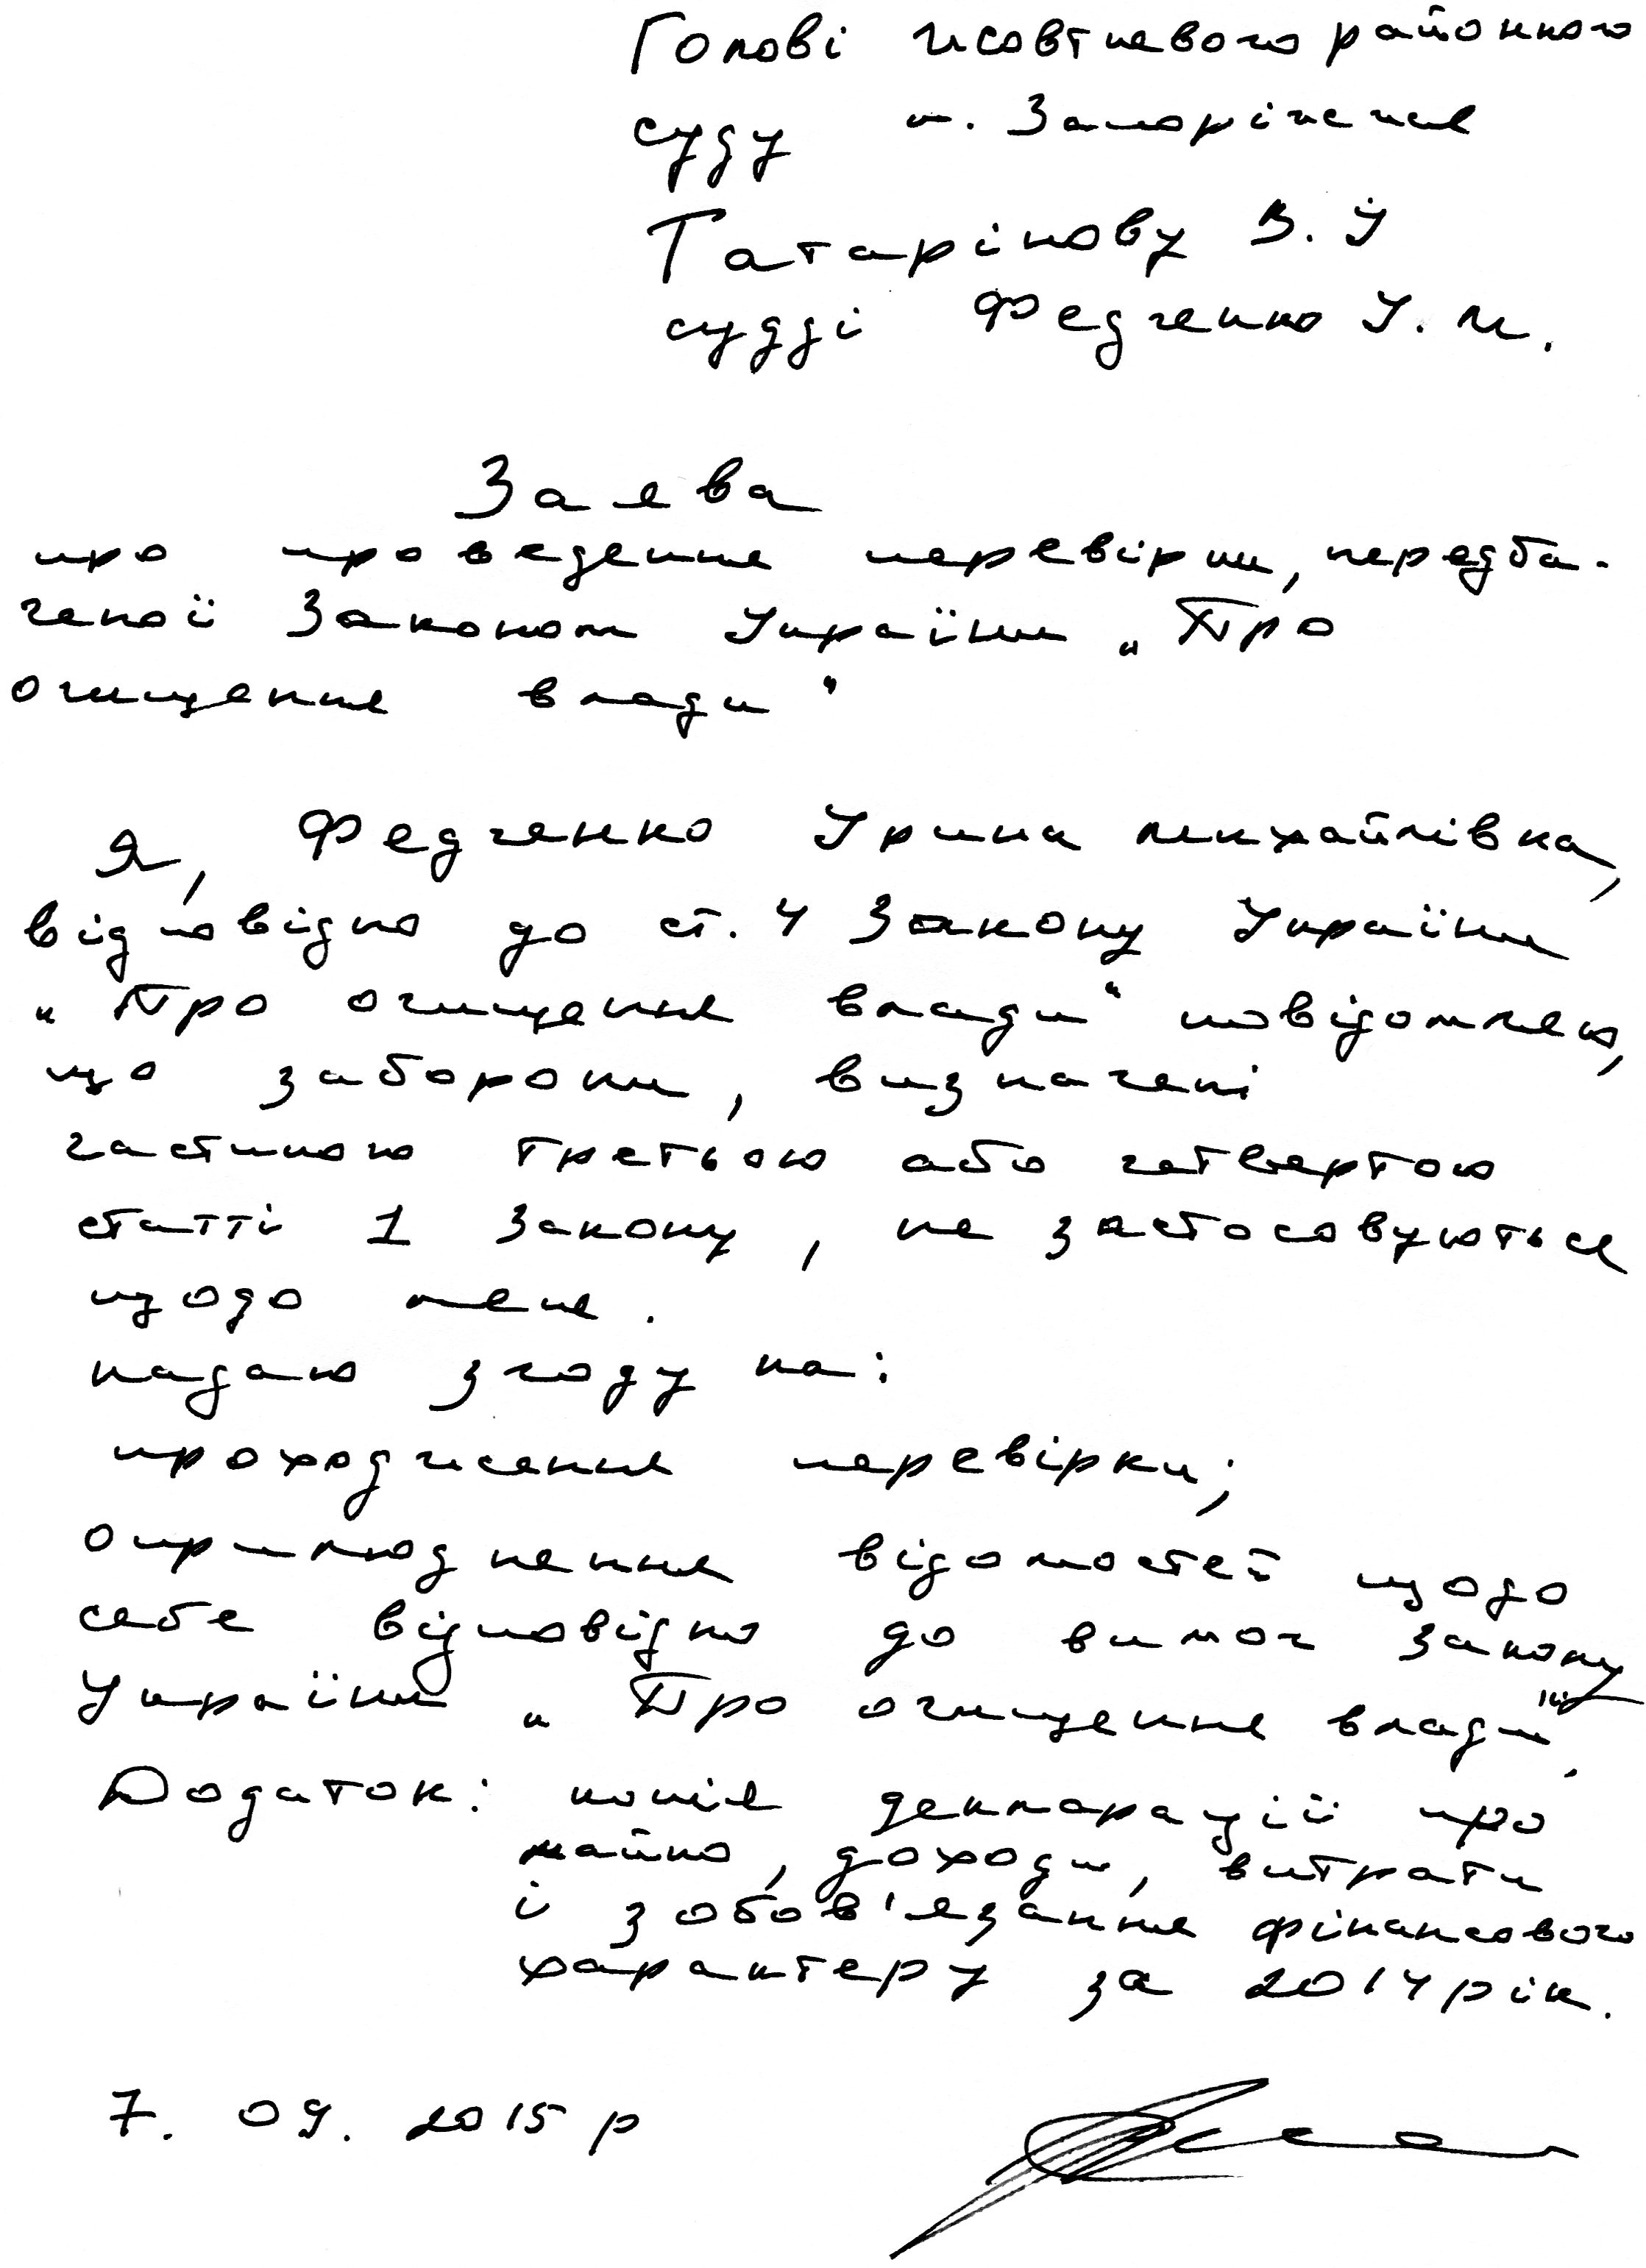 Голові Жовтневого районного
суду м. Запоріжжя
Татарінову В. І
судді Федченко І. М.
Заява
про проведення перевірки, передба-
ченої Законом України „Про
очищення влади“
Я, Федченко Ірина Михайлівна,
відповідно до ст. 4 Закону України
„Про очищення влади“ повідомляю,
що заборони, визначені
частиною третьою або четвертою
статті 1 Закону, не застосовуються
щодо мене.
надаю згоду на:
проходження перевірки;
оприлюднення відомостей щодо
себе відповідно до вимог закону
України „Про очищення влади“,
Додаток: копія декларації про
майно, доходи, витрати
і зобов'язання фінансового
характеру за 2014 рік.
7. 09. 2015 р